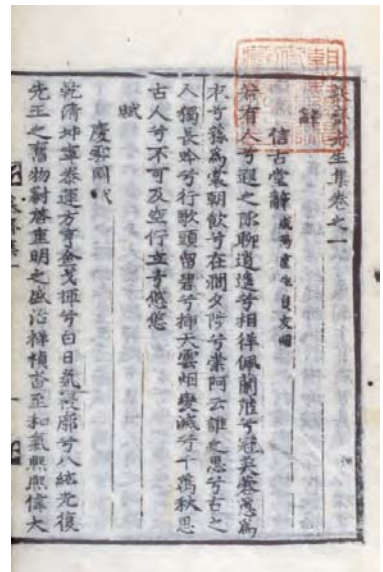 先生集卷之一
辭
信古堂辭 咸陽盧生員友明
有人兮遐之陬聊逍遙兮相徉佩蘭茝兮冠芙蓉蕙爲
兮籜爲裳朝飮兮在澗夕陟兮崇阿云誰之思兮古之
人獨長吟兮行歌頭留碧兮抑天雲烟變滅兮千萬秋思
古人兮不可及空佇立兮悠悠
賦
慶雲圖賦
乾清坤寧泰運方亨金戈揮兮白日氛祲廓兮八紘光復
先王之舊物蔚啓重明之盛治禎沓至和氣熙熙偉大